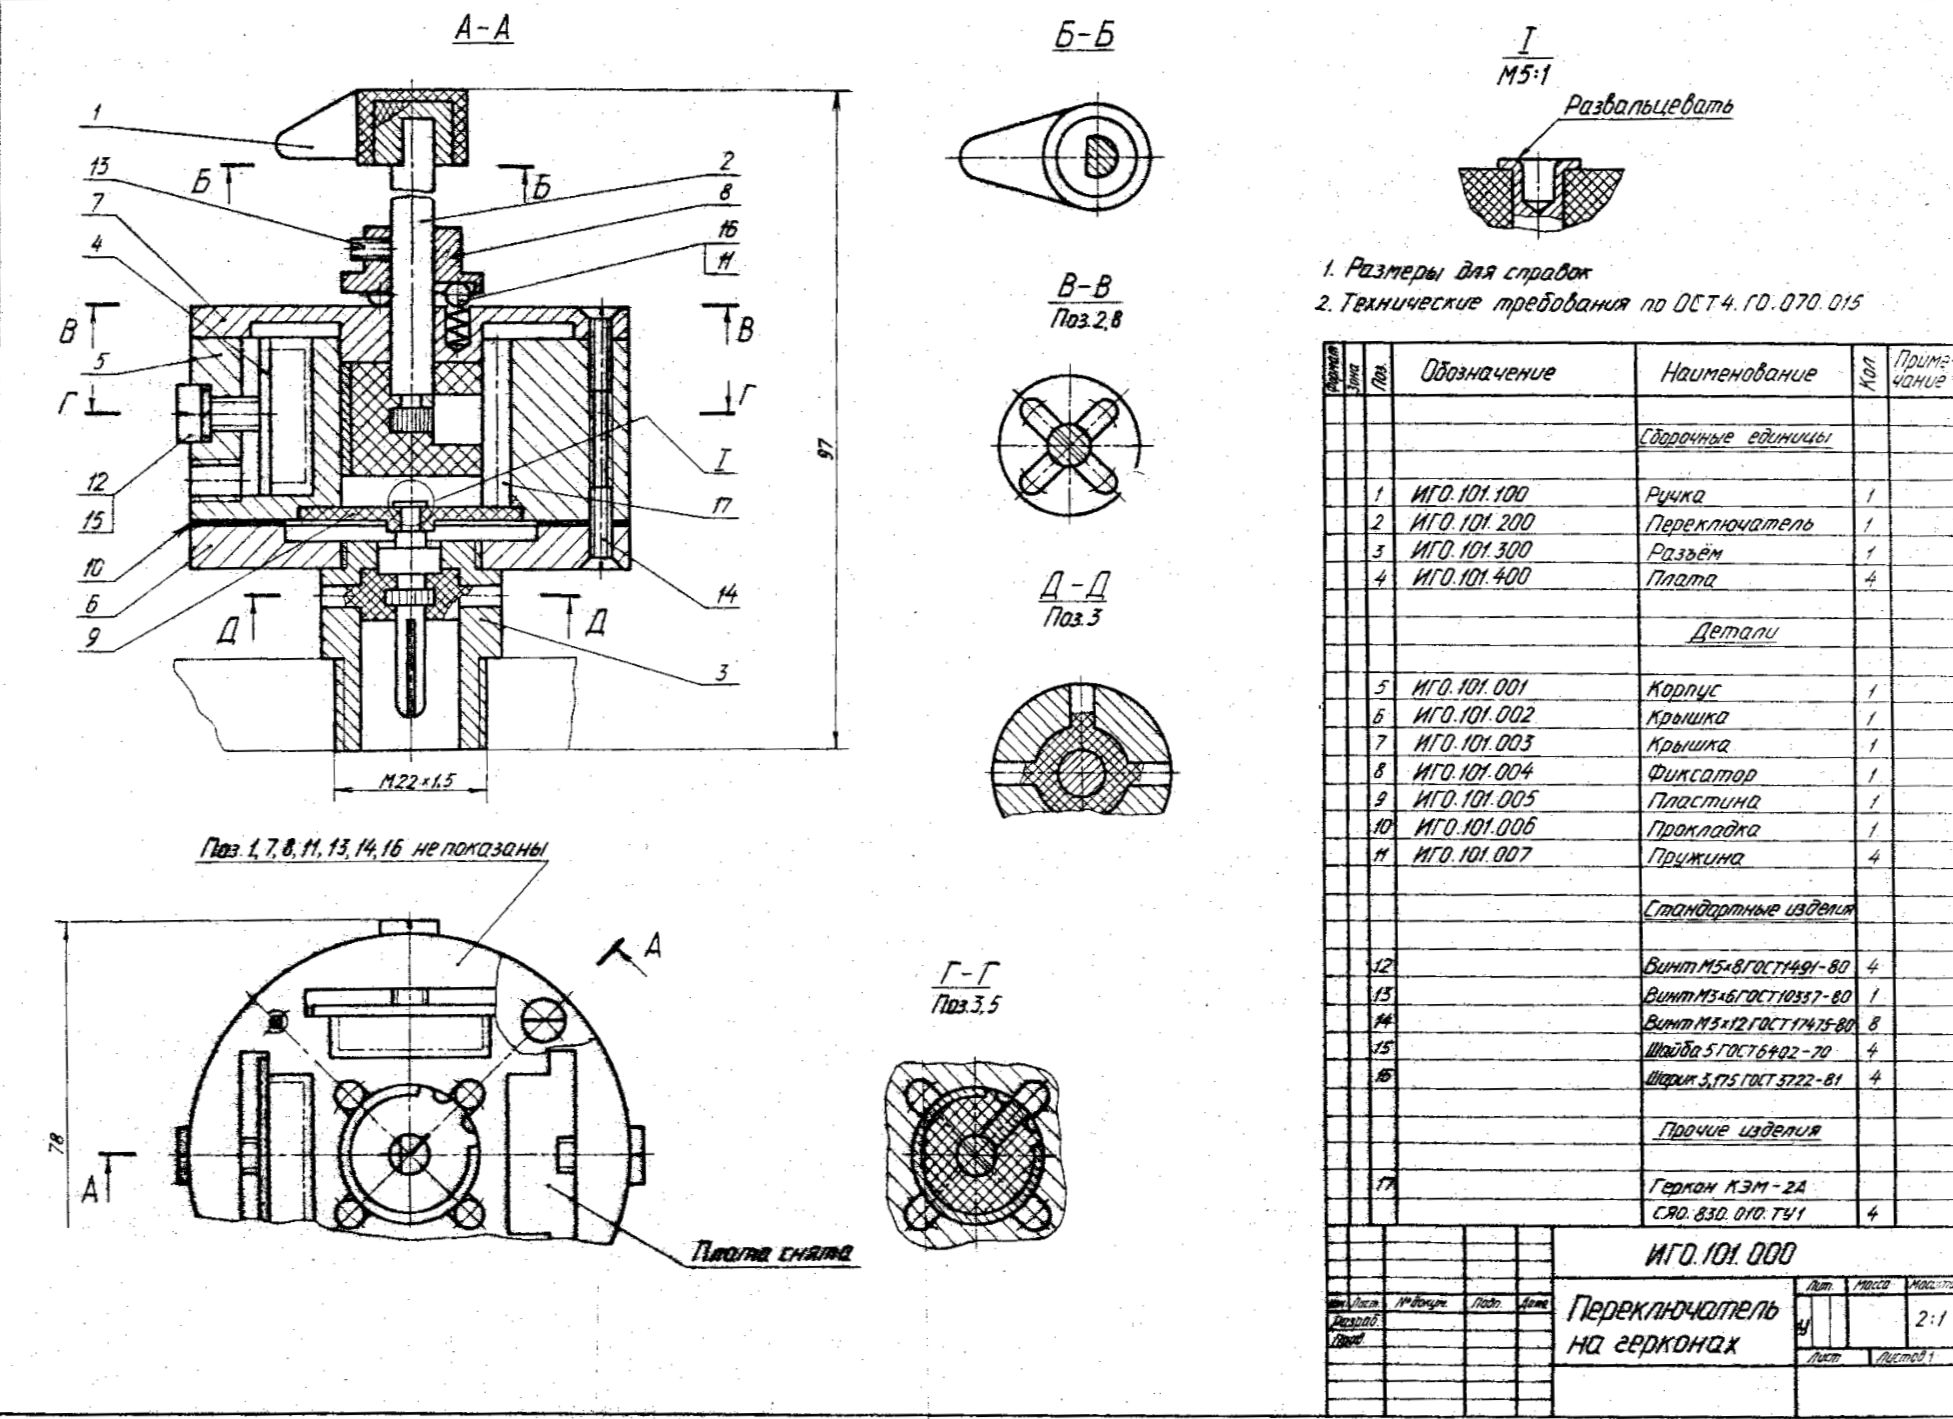 А-А
1
13
7
4
5
12
15
10
6
9
Б
Б
2
8
16
11
В
В
Г
Г
I
17
14
Д
Д
3
97
М22×1,5
Поз. 1, 7, 8, 11, 13, 14, 16 не показаны
А
А
78
Плата снята
Б-Б
В-В
Поз. 2,8
Д-Д
Поз. 3
Г-Г
Поз. 3, 5
I
М5:1
Развальцевать
1. Размеры для справок
2. Технические требования по ОСТ4.ГО.070.015
Формат Зона Поз. Обозначение Наименование Кол Приме-чание
Сборочные единицы
1 ИГО.101.100 Ручка 1
2 ИГО.101.200 Переключатель 1
3 ИГО.101.300 Разъём 1
4 ИГО.101.400 Плата 4
Детали
5 ИГО.101.001 Корпус 1
6 ИГО.101.002 Крышка 1
7 ИГО.101.003 Крышка 1
8 ИГО.101.004 Фиксатор 1
9 ИГО.101.005 Пластина 1
10 ИГО.101.006 Прокладка 1
11 ИГО.101.007 Пружина 4
Стандартные изделия
12 Винт М5×8 ГОСТ 1491-80 4
13 Винт М3×6 ГОСТ 10337-80 1
14 Винт М3×12 ГОСТ 17475-80 8
15 Шайба 5 ГОСТ 6402-70 4
16 Шарик 3,175 ГОСТ 3722-81 4
Прочие изделия
17 Геркон КЭМ-2А
СЯ0.830.010.ТУ1 4
ИГО.101.000
Изм. Лист №докум. Подп. Дата
Разраб.
Пров.
Переключатель
на герконах
Лит. Масса Масшта
У 2:1
Лист Листов 1